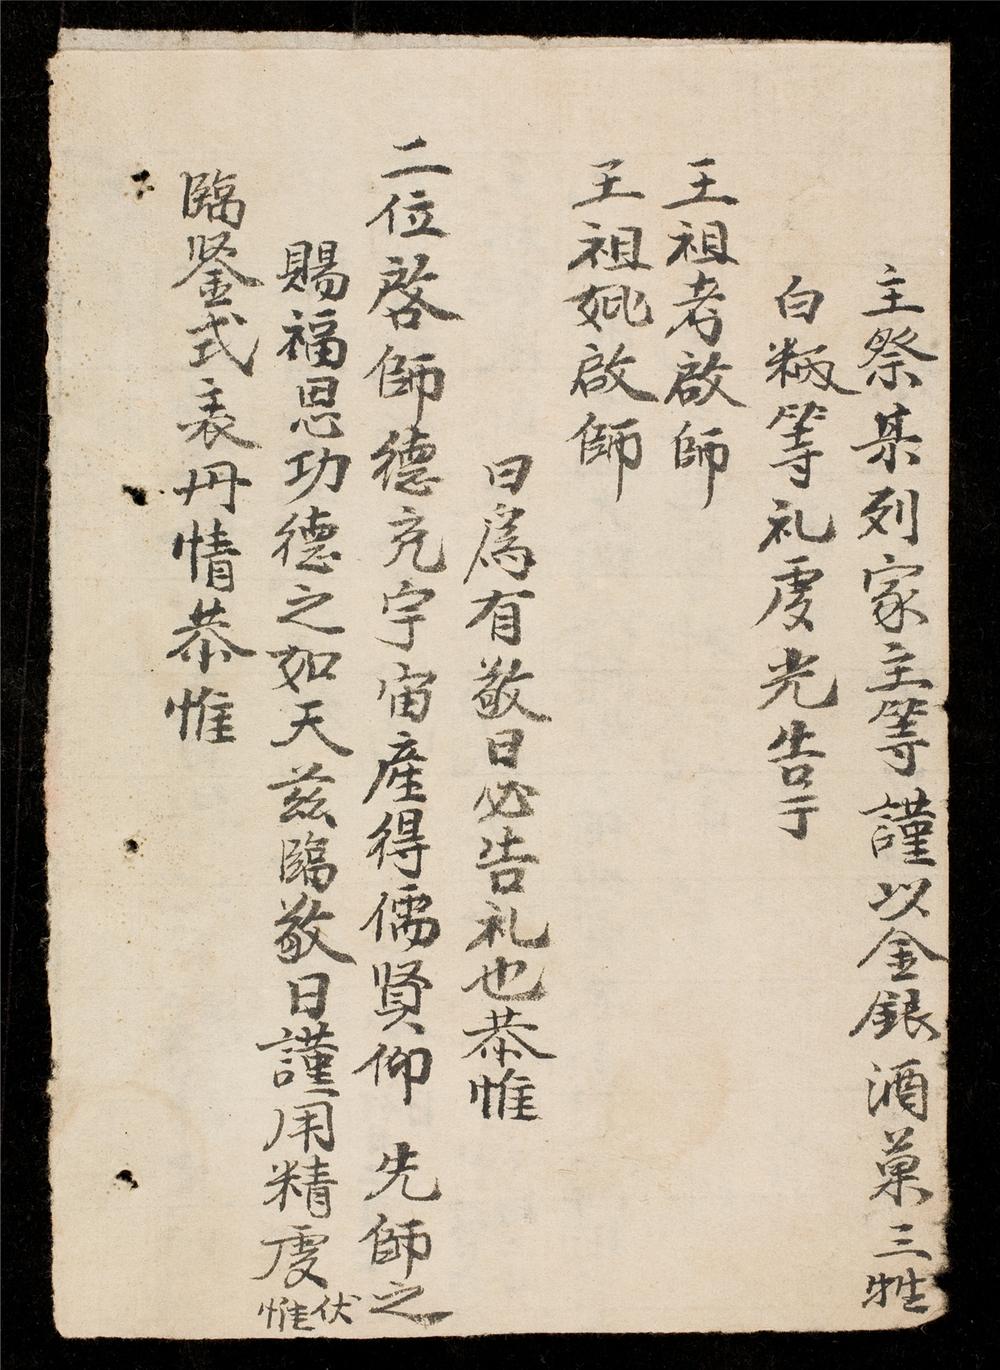 主祭某列家主等謹以金銀酒菓三牲
白粄等礼虔光告于
王祖考啟師
王祖妣啟師
曰為有敬日必告礼也恭惟
二位啓師德充宇宙產得儒賢仰 先師之
賜福恩功德之如天茲臨敬日謹用精虔伏惟
臨鉴式表丹情恭惟